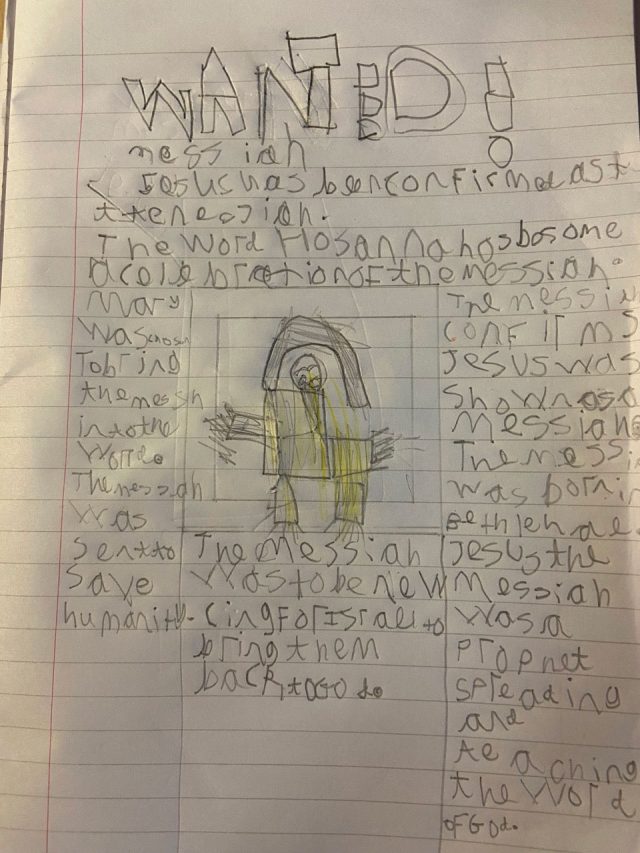 WANTED!
messiah
Jesus has been confirmed as t
the messiah.
The word Hosanna has bosome
a colebration of the messiah.
Mary
was chosen
To bring
the messih
into the
World.
The messiah
was
sent to
save
humanity.
The messiah
was to be new
cing For Israel to
bring them
back to God.
The messi
conFirms
Jesus was
shown as a
messiah
The messi
was born in
Bethlehae.
Jesus the
messiah
was a
Prophet
spreading
and
teaching
the word
of God.